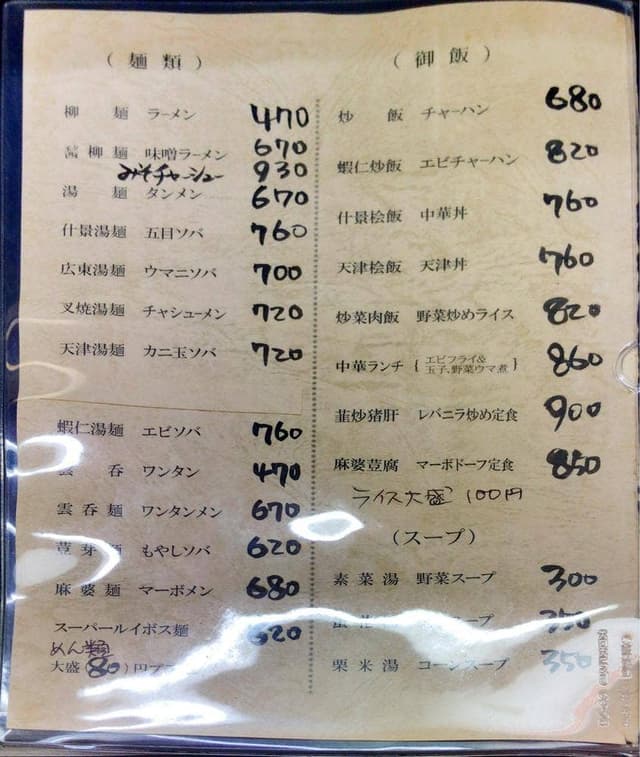 (麺類)
柳麺 ラーメン 470
柳麺 味噌ラーメン 670
みそチャーシュー 930
湯麺 タンメン 670
什景湯麺 五目ソバ 760
広東湯麺 ウマニソバ 700
叉焼湯麺 チャシューメン 720
天津湯麺 カニ玉ソバ 720
蝦仁湯麺 エビソバ 760
雲呑 ワンタン 470
雲呑麺 ワンタンメン 670
荳芽 もやしソバ 620
麻婆麺 マーボメン 680
スーパールイボス麺 620
めん類
大盛(80)円プ
(御飯)
炒飯 チャーハン 680
蝦仁炒飯 エビチャーハン 820
什景桧飯 中華丼 760
天津桧飯 天津丼 760
炒菜肉飯 野菜炒めライス 820
中華ランチ {エビフライ&
玉子、野菜ウマ煮} 860
韮炒猪肝 レバニラ炒め定食 900
麻婆荳腐 マーボドーフ定食 850
ライス大盛 100円
(スープ)
素菜湯 野菜スープ 300
スープ 350
栗米湯 コーンスープ 350